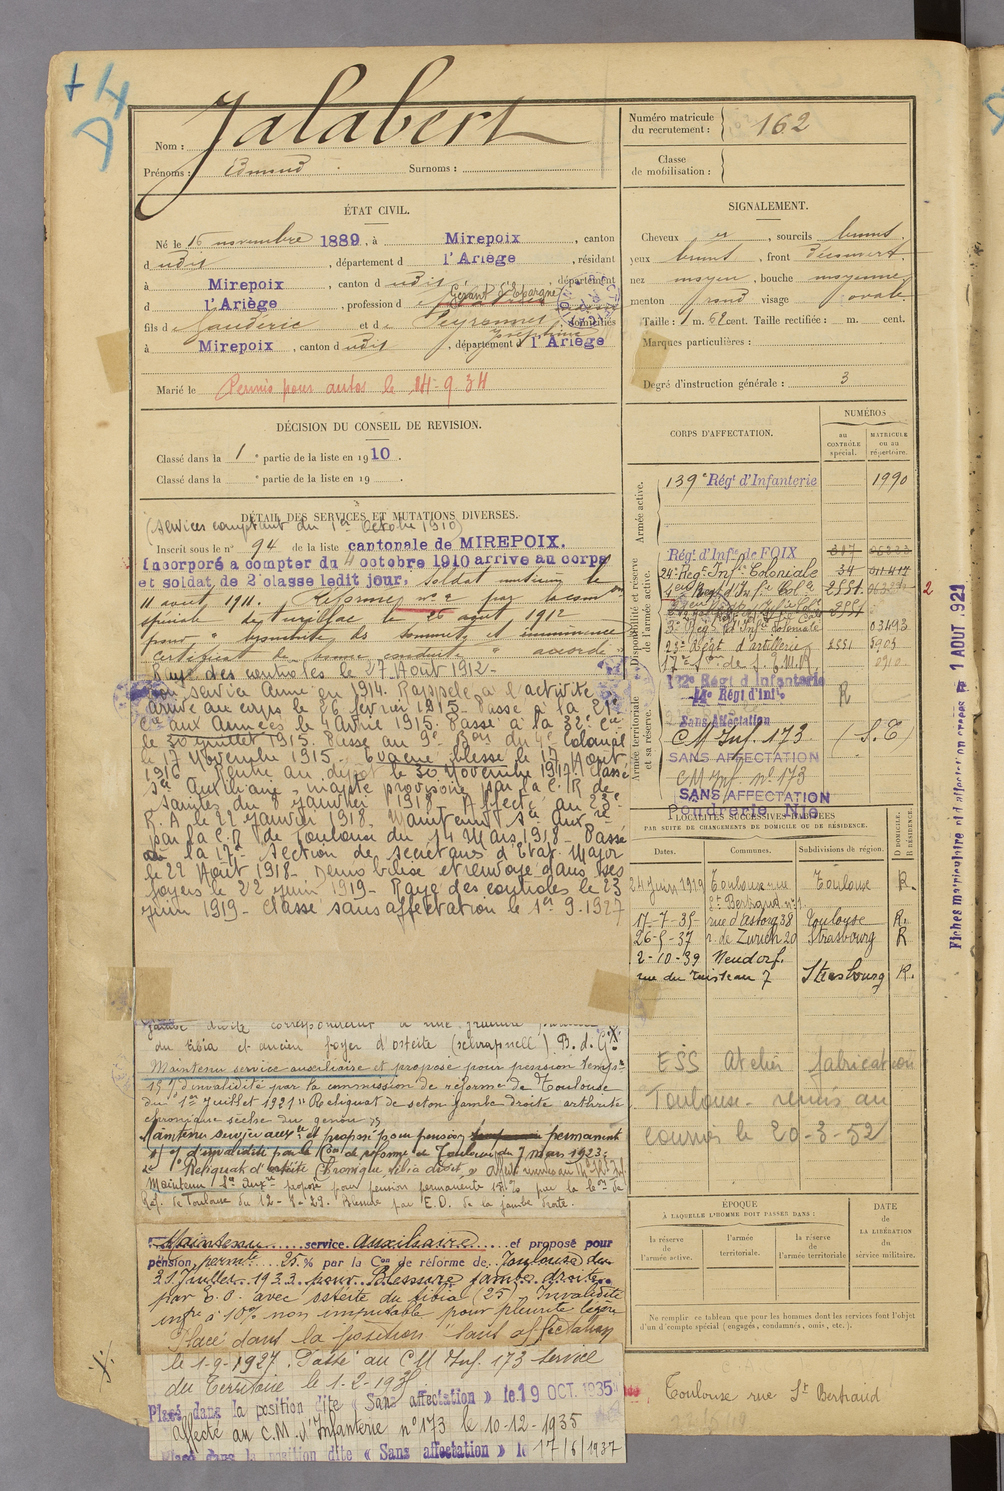 + 4
Nom : Jalabert
Prénoms : Edmond Surnoms :
Numéro matricule
du recrutement : 162
Classe
de mobilisation :
ÉTAT CIVIL.
Né le 16 novembre 1889, à Mirepoix, canton
d udit, département d l'Ariège, résidant
à Mirepoix, canton d udit, département
Gérant d'Epargne
d l'Ariège, profession d
fils de Gauderic et de Peyronnet domiciliés
Joséphine
à Mirepoix, canton d udit, département d l'Ariège
Marié le Permis pour autos le 14-9 34
SIGNALEMENT.
Cheveux , sourcils bruns.
yeux bruns, front Découvert.
nez moyen, bouche moyenne
menton rond visage ovale
Taille : 1 m. 62 cent. Taille rectifiée : m. cent.
Marques particulières :
Degré d'instruction générale : 3
DÉCISION DU CONSEIL DE REVISION.
Classé dans la 1e partie de la liste en 1910.
Classé dans la e partie de la liste en 19 .
DÉTAIL DES SERVICES ET MUTATIONS DIVERSES.
(Services comptant du 1er Octobre 1910)
Inscrit sous le n° 94 de la liste cantonale de MIREPOIX.
Incorporé a compter du 4 octobre 1910 arrive au corps
et soldat de 2e classe ledit jour. Soldat musicien le
11 août 1911. Réformé n° 2 par la com on
spéciale de le 26 août 1912
pour " des sommets et imminence
certificat de bonne conduite " accordé "
Rayé des contrôles le 27 Août 1912.
service Armé en 1914. Rappelé à l'activité
arrivé au corps le 26 février 1915. Passé à la 21e
Cie aux Armées le 4 Avril 1915. Passé à la 32e Cie
le 30 juillet 1915. Passé au 9e Bon du 4e Colonial
le 17 Novembre 1915. Evacué blessé le 17 Août
1916. Rentré au dépôt le 30 Novembre 1917. Classé
Sce Auxiliaire, inapte provisoire par la C.R. de
Saintes du 8 Janvier 1918. Affecté au 23e
R.A le 22 Janvier 1918. Maintenu Sce Auxre
par la C.R de Toulouse du 14 Mars 1918. Passé
à la 17e Section de secrétaires d'Etat-Major
le 22 Août 1918. Démobilisé et renvoyé dans ses
foyers le 22 juin 1919. Rayé des contrôles le 23
juin 1919. Classé sans affectation le 1er 9.1927
jambe droite correspondant à une fracture
du tibia et ancien foyer d'ostéite (schrapnell). B. d. G.
Maintenu service auxiliaire et proposé pour pension temp.re
15 % d'invalidité par la commission de réforme de Toulouse
du 1er Juillet 1921 "Reliquat de séton jambe droite arthrite
chronique sèche du genou"
Maintenu service auxre et proposé pour pension permanent
% d'invalidité par la Con de réforme de Toulouse du 7 mars 1923:
Reliquat d'ostéite Chronique tibia droit,
Maintenu Sce Auxre proposé pour pension permanente 15 % par la Con de
Ref. de Toulouse du 12-1-29. Blessé par E.O. de la jambe droite.
Maintenu service Auxiliaire et proposé pour
pension permte 25 % par la Con de réforme de Toulouse du
21 Juillet 1933 pour Blessure jambe droite
par E.O. avec ostéite du tibia (25). Invalidité
infre à 10% non imputable pour pleurite légère
Placé dans la position "Sans affectation
le 1-9-1927. Passé au C M Inf. 173 Service
du Territoire le 1-2-193
Placé dans la position dite « Sans affectation » le 19 OCT. 1935
affecté au C.M. d'Infanterie n° 173 le 10-12-1935
Placé dans la position dite « Sans affectation » le 17/6/1937
CORPS D'AFFECTATION.
NUMÉROS
au
CONTRÔLE
spécial.
MATRICULE
ou au
répertoire.
Armée active.
139e Régt d'Infanterie 1990
Disponibilité et réserve
de l'armée active.
Régt d'Infie de FOIX 307
24e Rég. Inf. Coloniale 34
2551
3e Rég. d'Inf. Coloniale 03493
23e Régt d'artillerie 2551
17e Son de S. E. M. R.
Armée territoriale
et sa réserve.
122e Régt d'Infanterie
Régt d'Infie R
Sans Affectation
CM Inf. 173 (S.T)
SANS AFFECTATION
CM Inf n° 173
SANS AFFECTATION
Poudrerie Nle
LOCALITÉS SUCCESSIVES HABITÉES
PAR SUITE DE CHANGEMENTS DE DOMICILE OU DE RÉSIDENCE.
Dates. Communes. Subdivisions de région. D DOMICILE. R RÉSIDENCE.
24 Juin 1919 Toulouse rue Toulouse R.
St Bertrand n°1
17-7-35 rue d'Astorg 38 Toulouse R.
26-5-37 r. de Zurich 20 Strasbourg R
2-10-39 Neudorf.
rue du ruisseau 7 Strasbourg R.
ESS Atelier fabrication
Toulouse - remis au
le 20-3-52
ÉPOQUE
À LAQUELLE L'HOMME DOIT PASSER DANS :
la réserve
de
l'armée active.
l'armée
territoriale.
la réserve
de
l'armée territoriale
DATE
de
LA LIBÉRATION
du
service militaire.
Ne remplir ce tableau que pour les hommes dont les services font l'objet
d'un décompte spécial (engagés, condamnés, omis, etc.).
Toulouse rue St Bertrand
Fiches matriculaire et d'affectation créées le 1 AOUT 1929
2